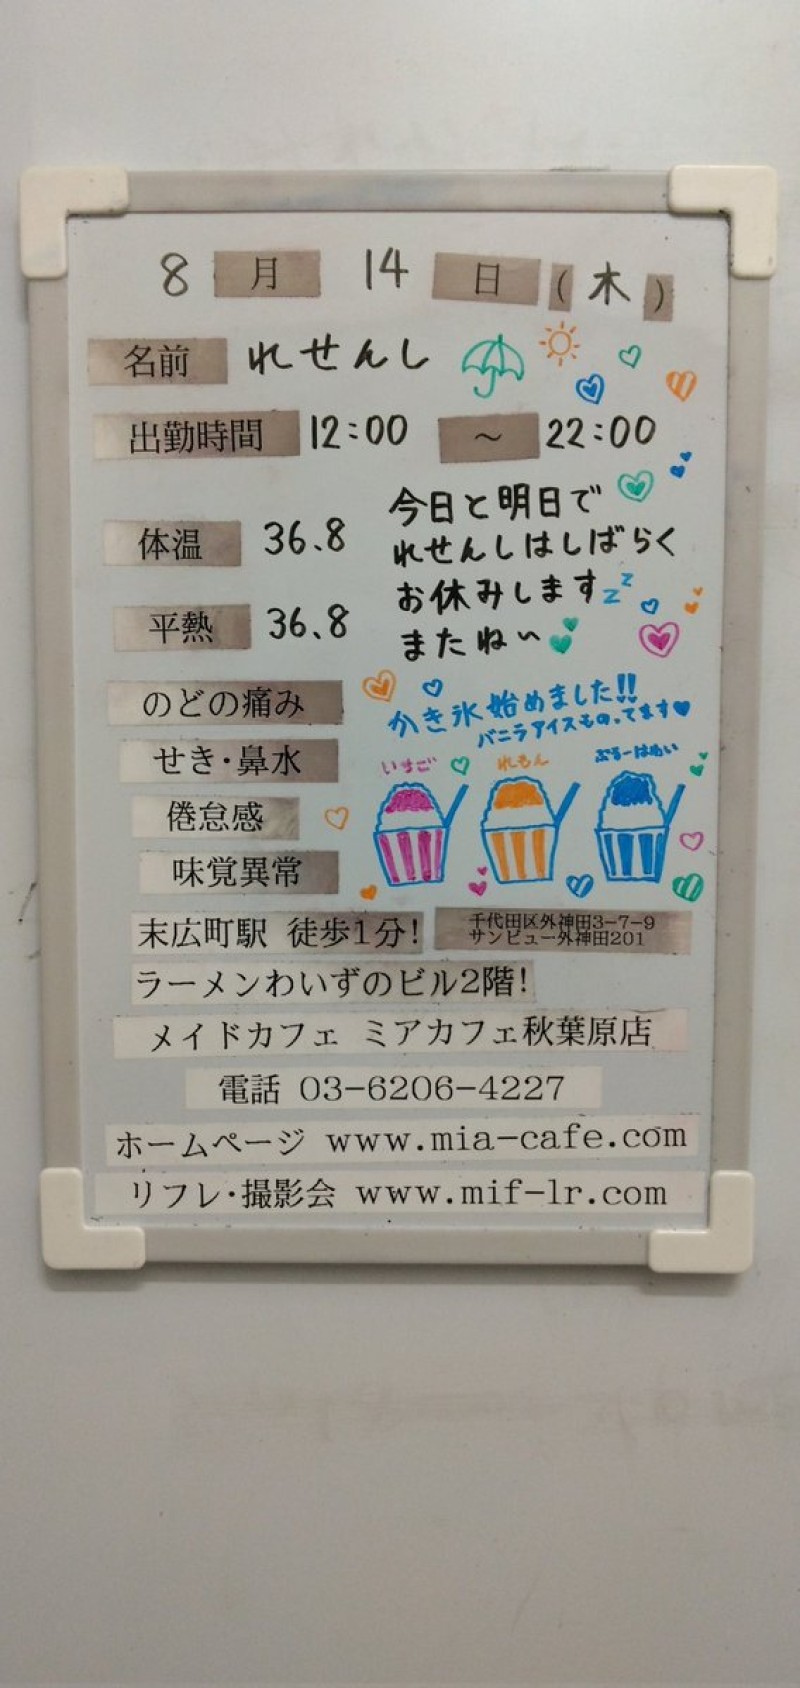 8月 14日(木)
名前 れせんし
出勤時間 12:00 ~ 22:00
体温 36.8
平熱 36.8
今日と明日で
れせんしはしばらく
お休みします zz
またね〜
のどの痛み
せき・鼻水
倦怠感
味覚異常
かき氷始めました!!
バニラアイスものってます
いちご れもん ぶるーはわい
末広町駅 徒歩1分!
千代田区外神田3-7-9
サンビュー外神田201
ラーメンわいずのビル2階!
メイドカフェ ミアカフェ秋葉原店
電話 03-6206-4227
ホームページ www.mia-cafe.com
リフレ・撮影会 www.mif-lr.com